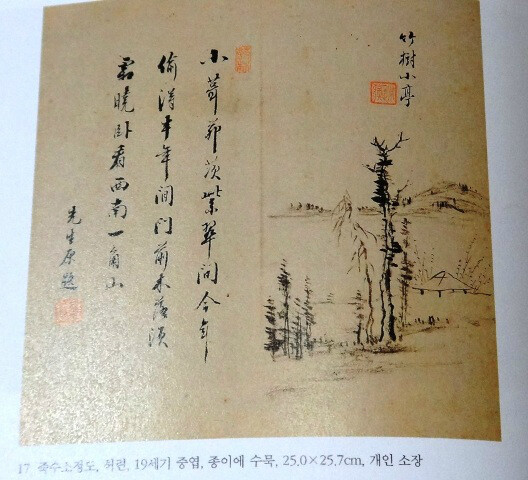 竹樹小亭
小葺茆茨紫翠間今年
偷得半年間門前木落須
霜曉卧看西南一角山
先生原題
17 죽수소정도, 허련, 19세기 중엽, 종이에 수묵, 25.0×25.7cm, 개인 소장